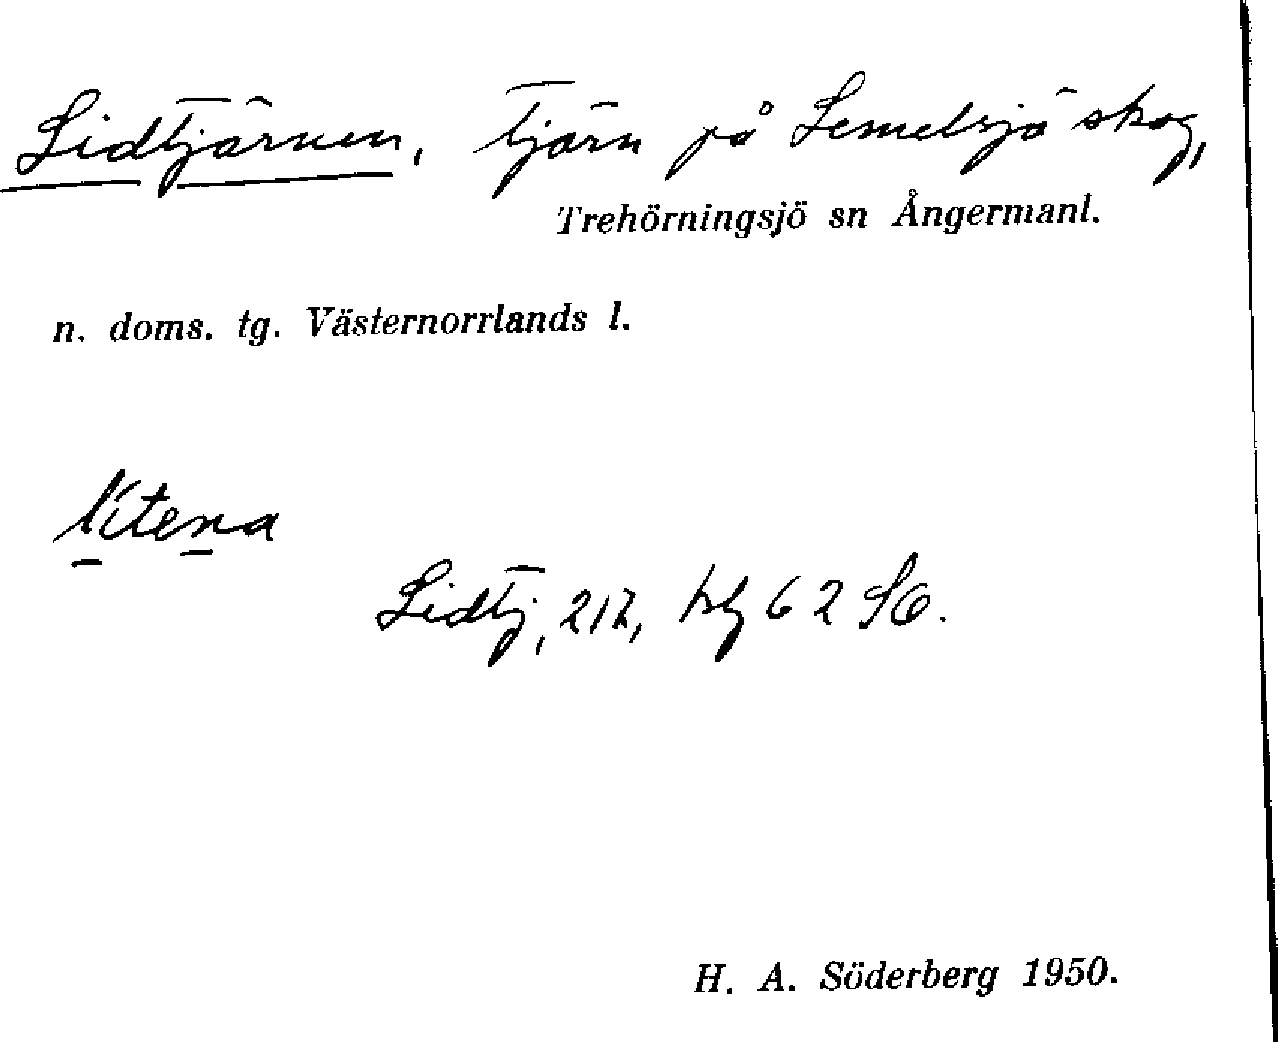 Lidtjärnen, tjärn på Lemelsjö skog,
Trehörningsjö sn Ångermanl.
n. doms. tg. Västernorrlands l.
Lidtj, 217, kbl 62 SO.
H. A. Söderberg 1950.